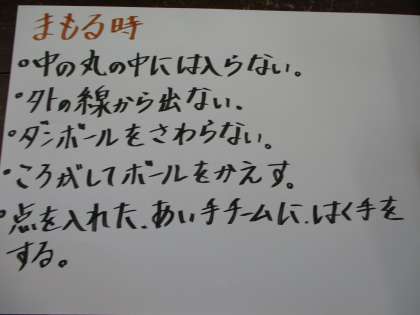 まもる時
・中の丸の中には入らない。
・外の線から出ない.
・ダンボールをさわらない。
・ころがしてボールをかえす。
・点を入れた.あい手チームに.はく手を
する。